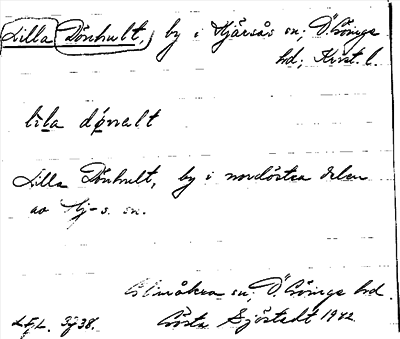 Lilla Dönhult, by i Hjärsås sn; Ö. Göinge
hd; Krist. l.
lila dønalt
Lilla Dönhult, by i nordöstra delen
av Hj-s. sn.
Glimåkra sn, Ö. Göinge hd.
Gösta Sjöstedt 1942.